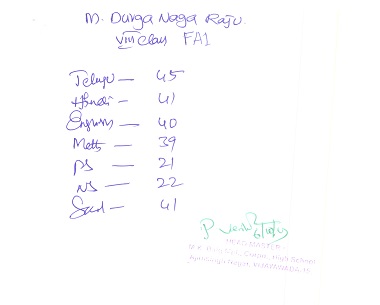 M. Durga Naga Raju.
VIII class FA1
Telugu — 45
Hindi - 41
English — 40
Maths — 39
PS — 21
NS — 22
Social — 41
HEAD MASTER
High School
VIJAYAWADA